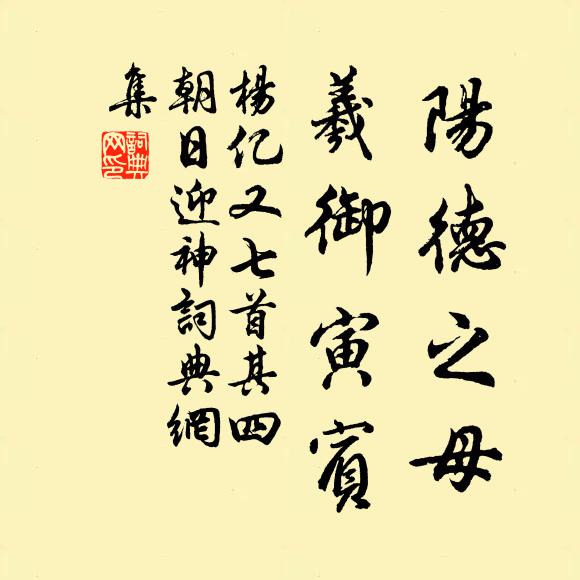 陽德之母
羲御寅賓
楊亿又七首其四
朝日迎神詞典網
集
詞典
网印